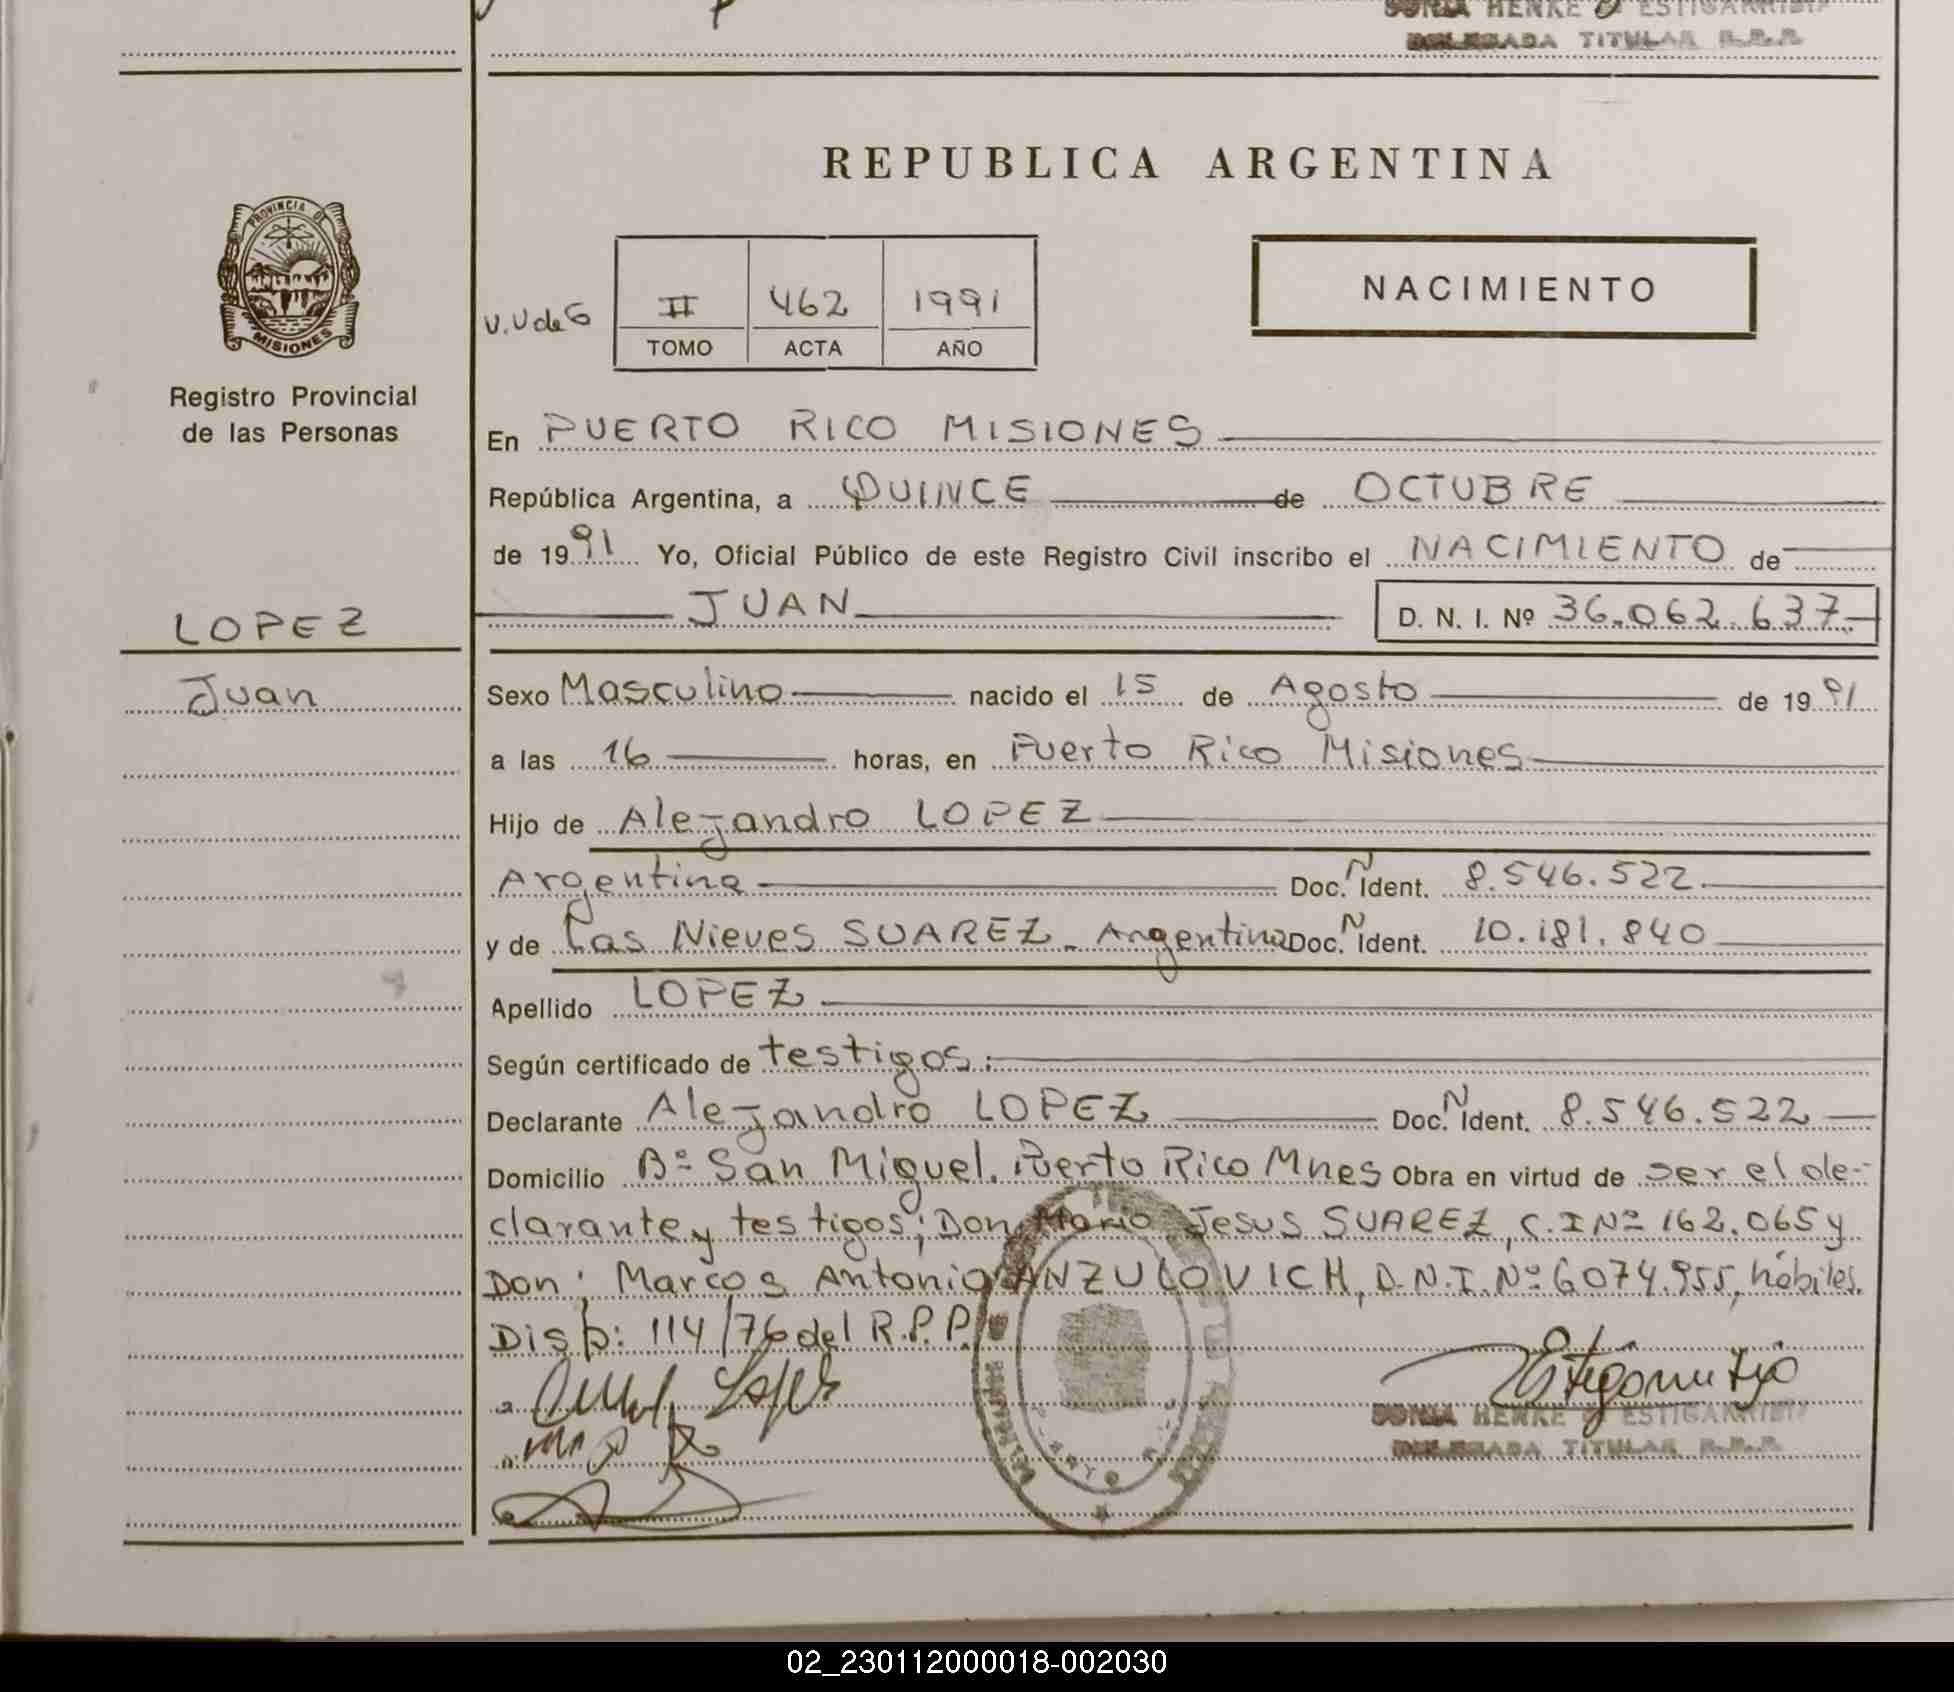 SONIA HENKE ESTIGARRIBIA
DELEGADA TITULAR R.P.P.
REPUBLICA ARGENTINA
PROVINCIA DE
MISIONES
Registro Provincial
de las Personas
V.V de G
II 462 1991
TOMO ACTA AÑO
NACIMIENTO
En PUERTO RICO MISIONES
República Argentina, a QUINCE de OCTUBRE
de 1991 Yo, Oficial Público de este Registro Civil inscribo el NACIMIENTO de
JUAN D. N. I. Nº 36.062.637.
LOPEZ
Juan
Sexo Masculino nacido el 15 de Agosto de 1991
a las 16 horas, en Puerto Rico Misiones
Hijo de Alejandro LOPEZ
Argentina Doc. N Ident. 8.546.522
y de Las Nieves SUAREZ - Argentina Doc. N Ident. 10.181.840
Apellido LOPEZ
Según certificado de testigos:
Declarante Alejandro LOPEZ Doc. N Ident. 8.546.522
Domicilio Bº San Miguel. Puerto Rico Mnes Obra en virtud de ser el de-
clarante y testigos; Don Mario Jesus SUAREZ, C.I Nº 162.065 y
Don: Marcos Antonio ANZULOVICH, D.N.I. Nº 6074.955, hábiles.
Disp: 114/76 del R.P.P.
SONIA HENKE ESTIGARRIBIA
DELEGADA TITULAR R.P.P.
02_230112000018-002030